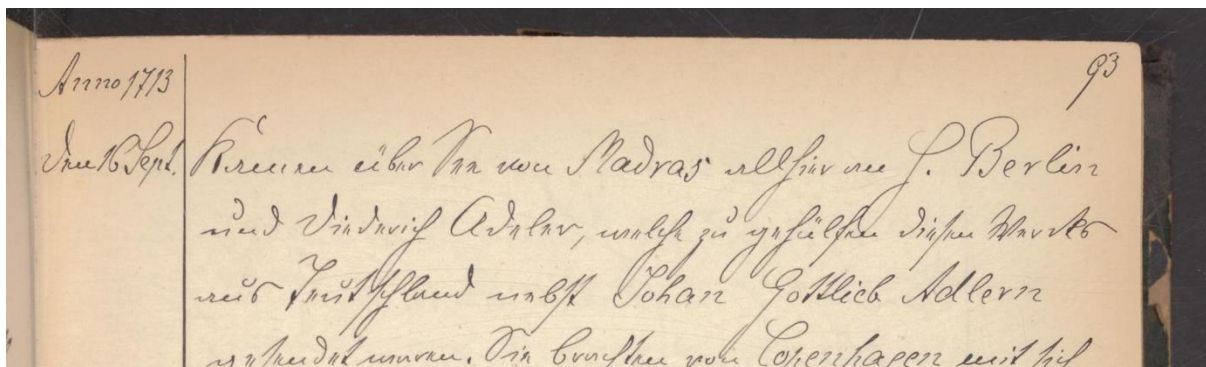 Anno 1713
93
den 16 Sept. Kamen über See von Madras allhier an H. Berlin
und Diederich Adeler, welche zu gehülfen diesen Wercks
aus Teutschland nebst Johan Gottlieb Adlern
gesendet waren. Sie brachten von Copenhagen mit sich